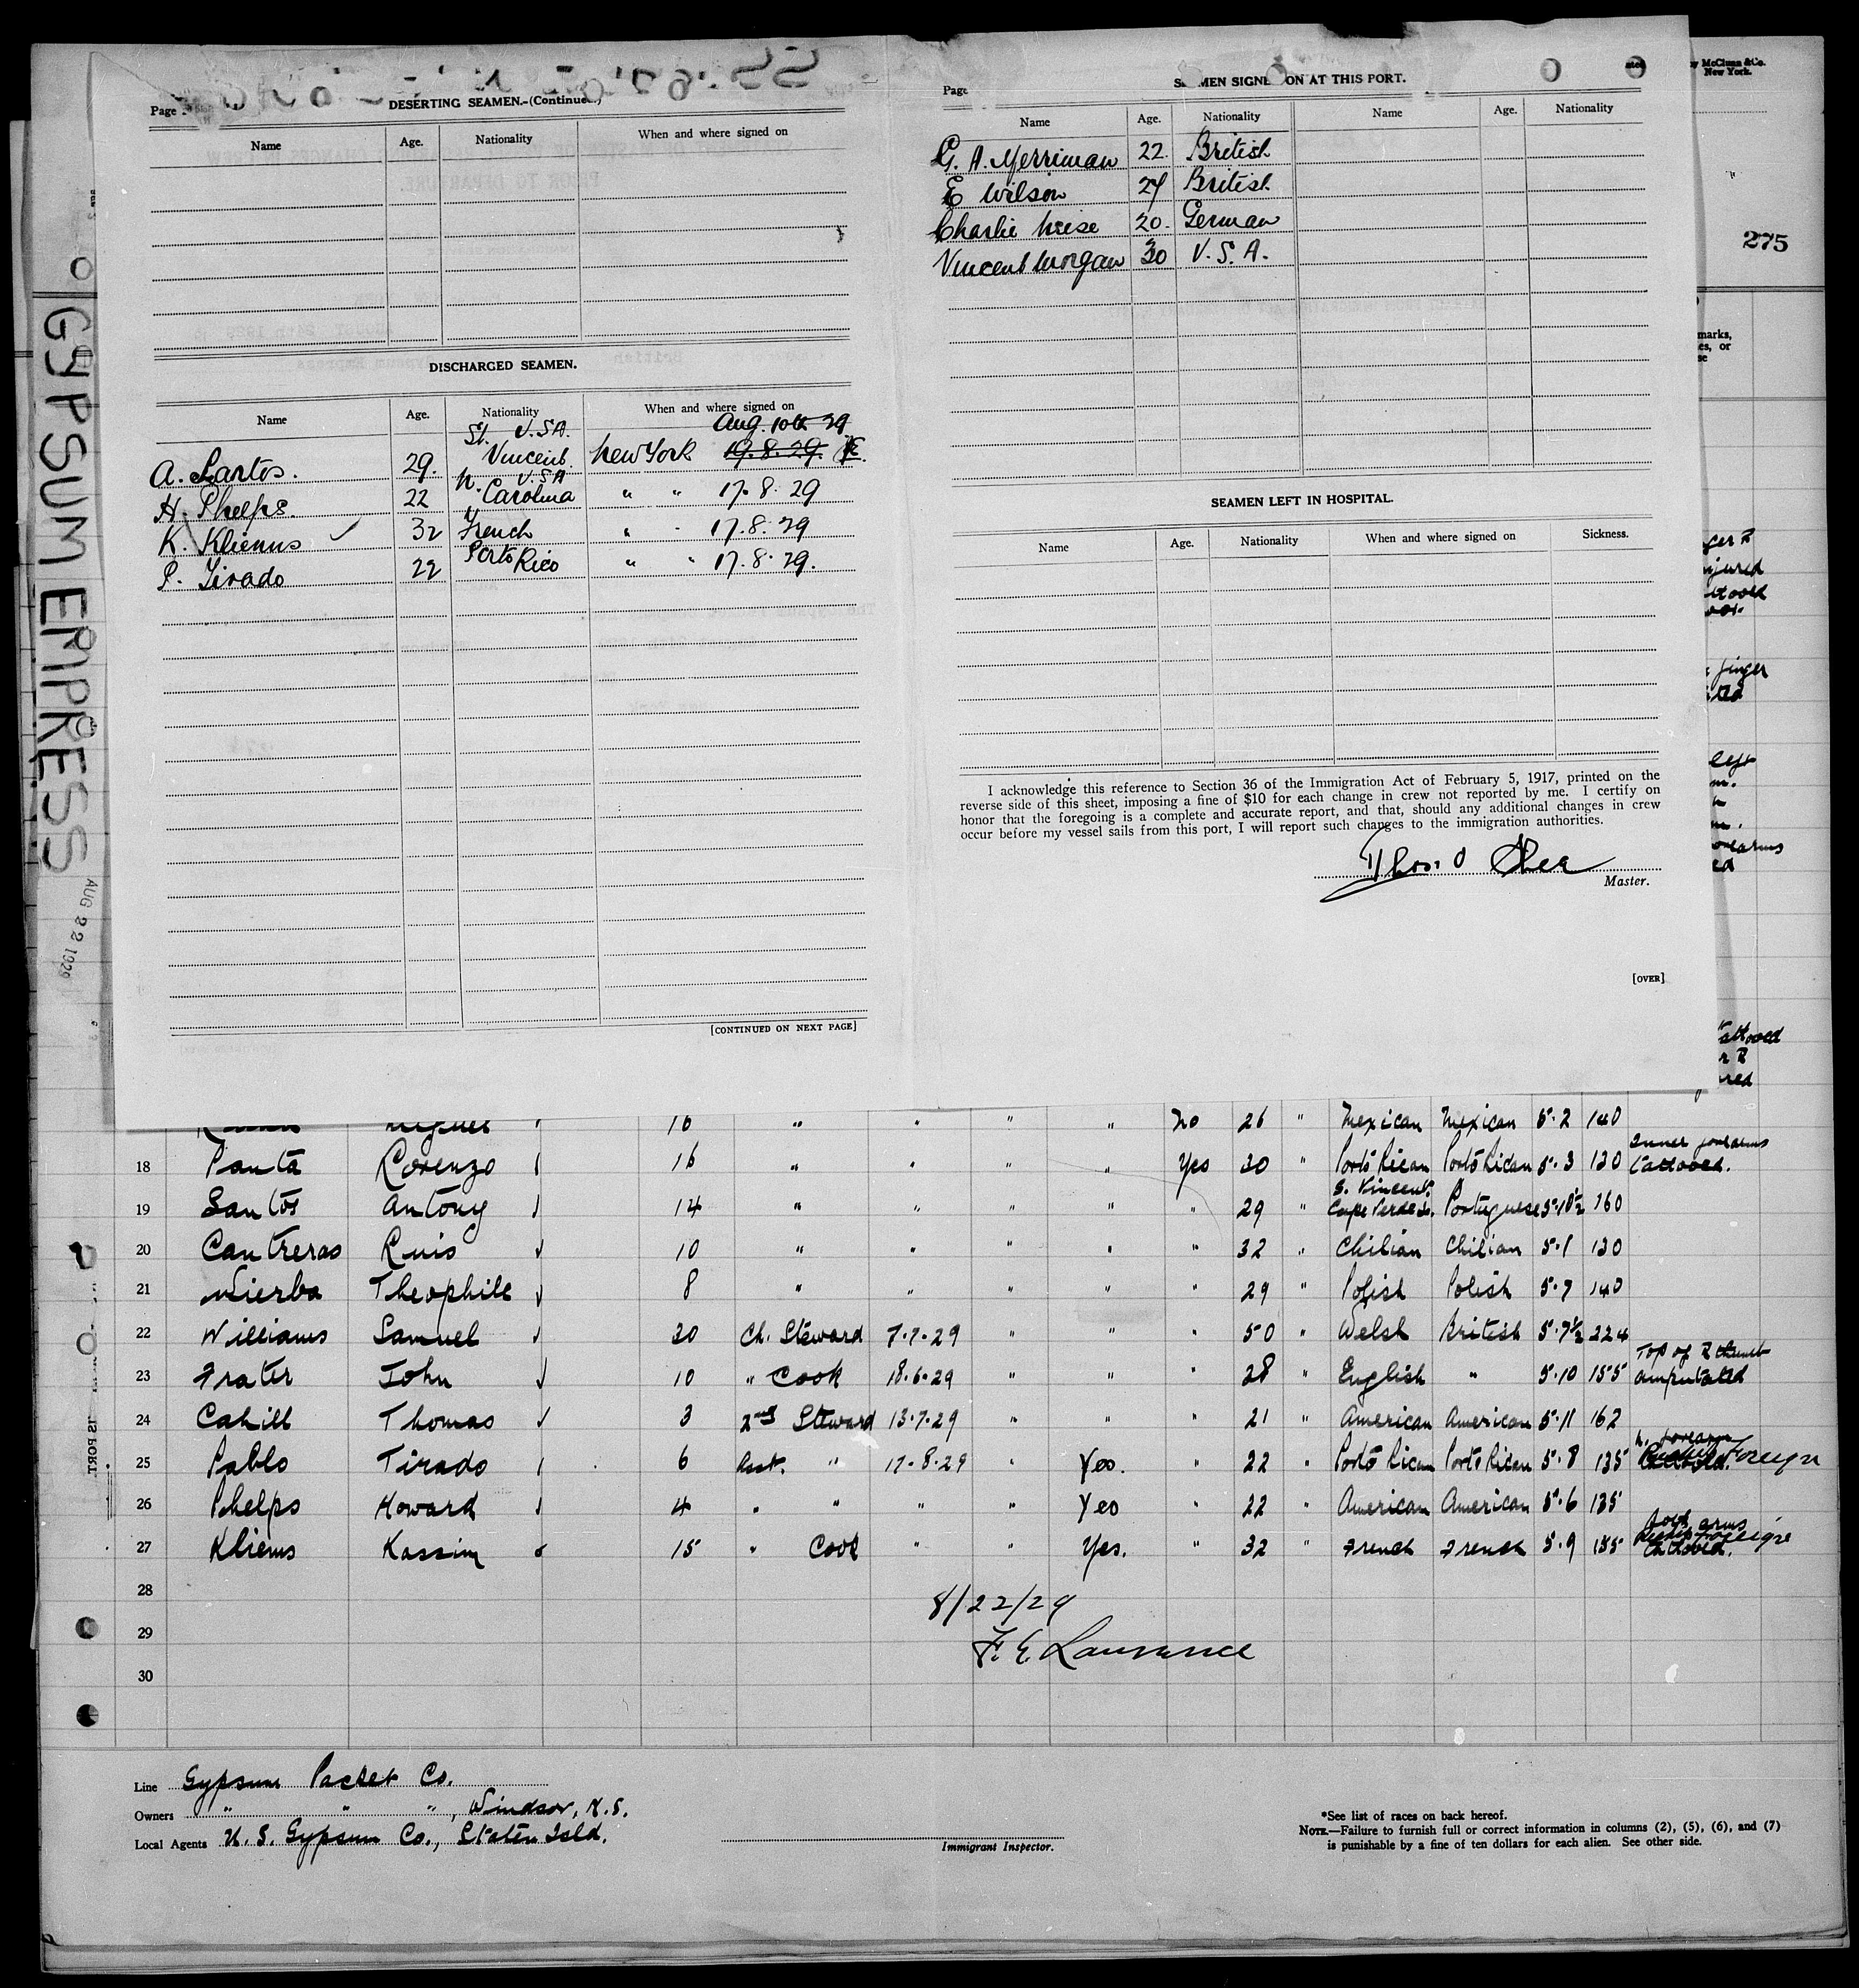 Page
DESERTING SEAMEN.-(Continued)
Name Age. Nationality When and where signed on
DISCHARGED SEAMEN.
Name Age. Nationality When and where signed on
St. U.S.A. Aug. 10th 29
A. Santos. 29. Vincent. New York 19.8.29.
N. U.S.A
H. Phelps. 22 Carolina " " 17.8.29
K. Klienns ✓ 32 French " " 17.8.29
P. Tirado 22 Porto Rico " " 17.8.29.
[CONTINUED ON NEXT PAGE]
Page
SEAMEN SIGNED ON AT THIS PORT.
Name Age. Nationality Name Age. Nationality
G. A. Merriman 22. British
E Wilson 27 British
Charlie Weise 20. German
Vincent Morgan 30 U.S.A.
SEAMEN LEFT IN HOSPITAL.
Name Age. Nationality When and where signed on Sickness.
I acknowledge this reference to Section 36 of the Immigration Act of February 5, 1917, printed on the
reverse side of this sheet, imposing a fine of $10 for each change in crew not reported by me. I certify on
honor that the foregoing is a complete and accurate report, and that, should any additional changes in crew
occur before my vessel sails from this port, I will report such changes to the immigration authorities.
Thos. O Shea
Master.
[OVER]
GYPSUM EMPRESS
AUG 22 1929
y McClunn &Co.
New York.
275
marks,
es, or
se
njured
finger
Miguel 16 " " " " No 26 " Mexican Mexican 5.2 140
18 Panta Lorenzo 16 " " " " Yes 30 " Porto Rican Porto Rican 5.3 130 Inner forearms tattooed.
19 Santos Antony 14 " " " " " 29 " S. Vincent Cape Verde Is. Portuguese 5.10½ 160
20 Cantreras Luis 10 " " " " " 32 " Chilian Chilian 5.1 130
21 Wierba Theophile 8 " " " " " 29 " Polish Polish 5.7 140
22 Williams Samuel 20 Ch. Steward 7.7.29 " " " 50 " Welsh British 5.7½ 224
23 Frater John 10 " Cook 18.6.29 " " " 28 " English " 5.10 155 Top of R thumb amputated
24 Cahill Thomas 3 2nd Steward 13.7.29 " " " 21 " American American 5.11 162
25 Pablo Tirado 6 Asst. " 17.8.29 " Yes. " 22 " Porto Rican Porto Rican 5.8 135 forearm Foreign
26 Phelps Howard 4 " " " " Yes " 22 " American American 5.6 135
27 Kliems Kassim 15 " Cook " " Yes. " 32 " French French 5.9 155 arms tattooed.
28
29
30
8/22/29
F. E. Lawrence
Line Gypsum Packet Co.
Owners " " ", Windsor, N.S.
Local Agents U. S. Gypsum Co., Staten Isld.
Immigrant Inspector.
*See list of races on back hereof.
NOTE.—Failure to furnish full or correct information in columns (2), (5), (6), and (7)
is punishable by a fine of ten dollars for each alien. See other side.